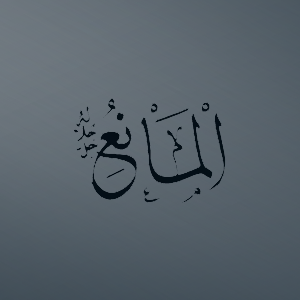 الْمَانِعُ
جل جلاله